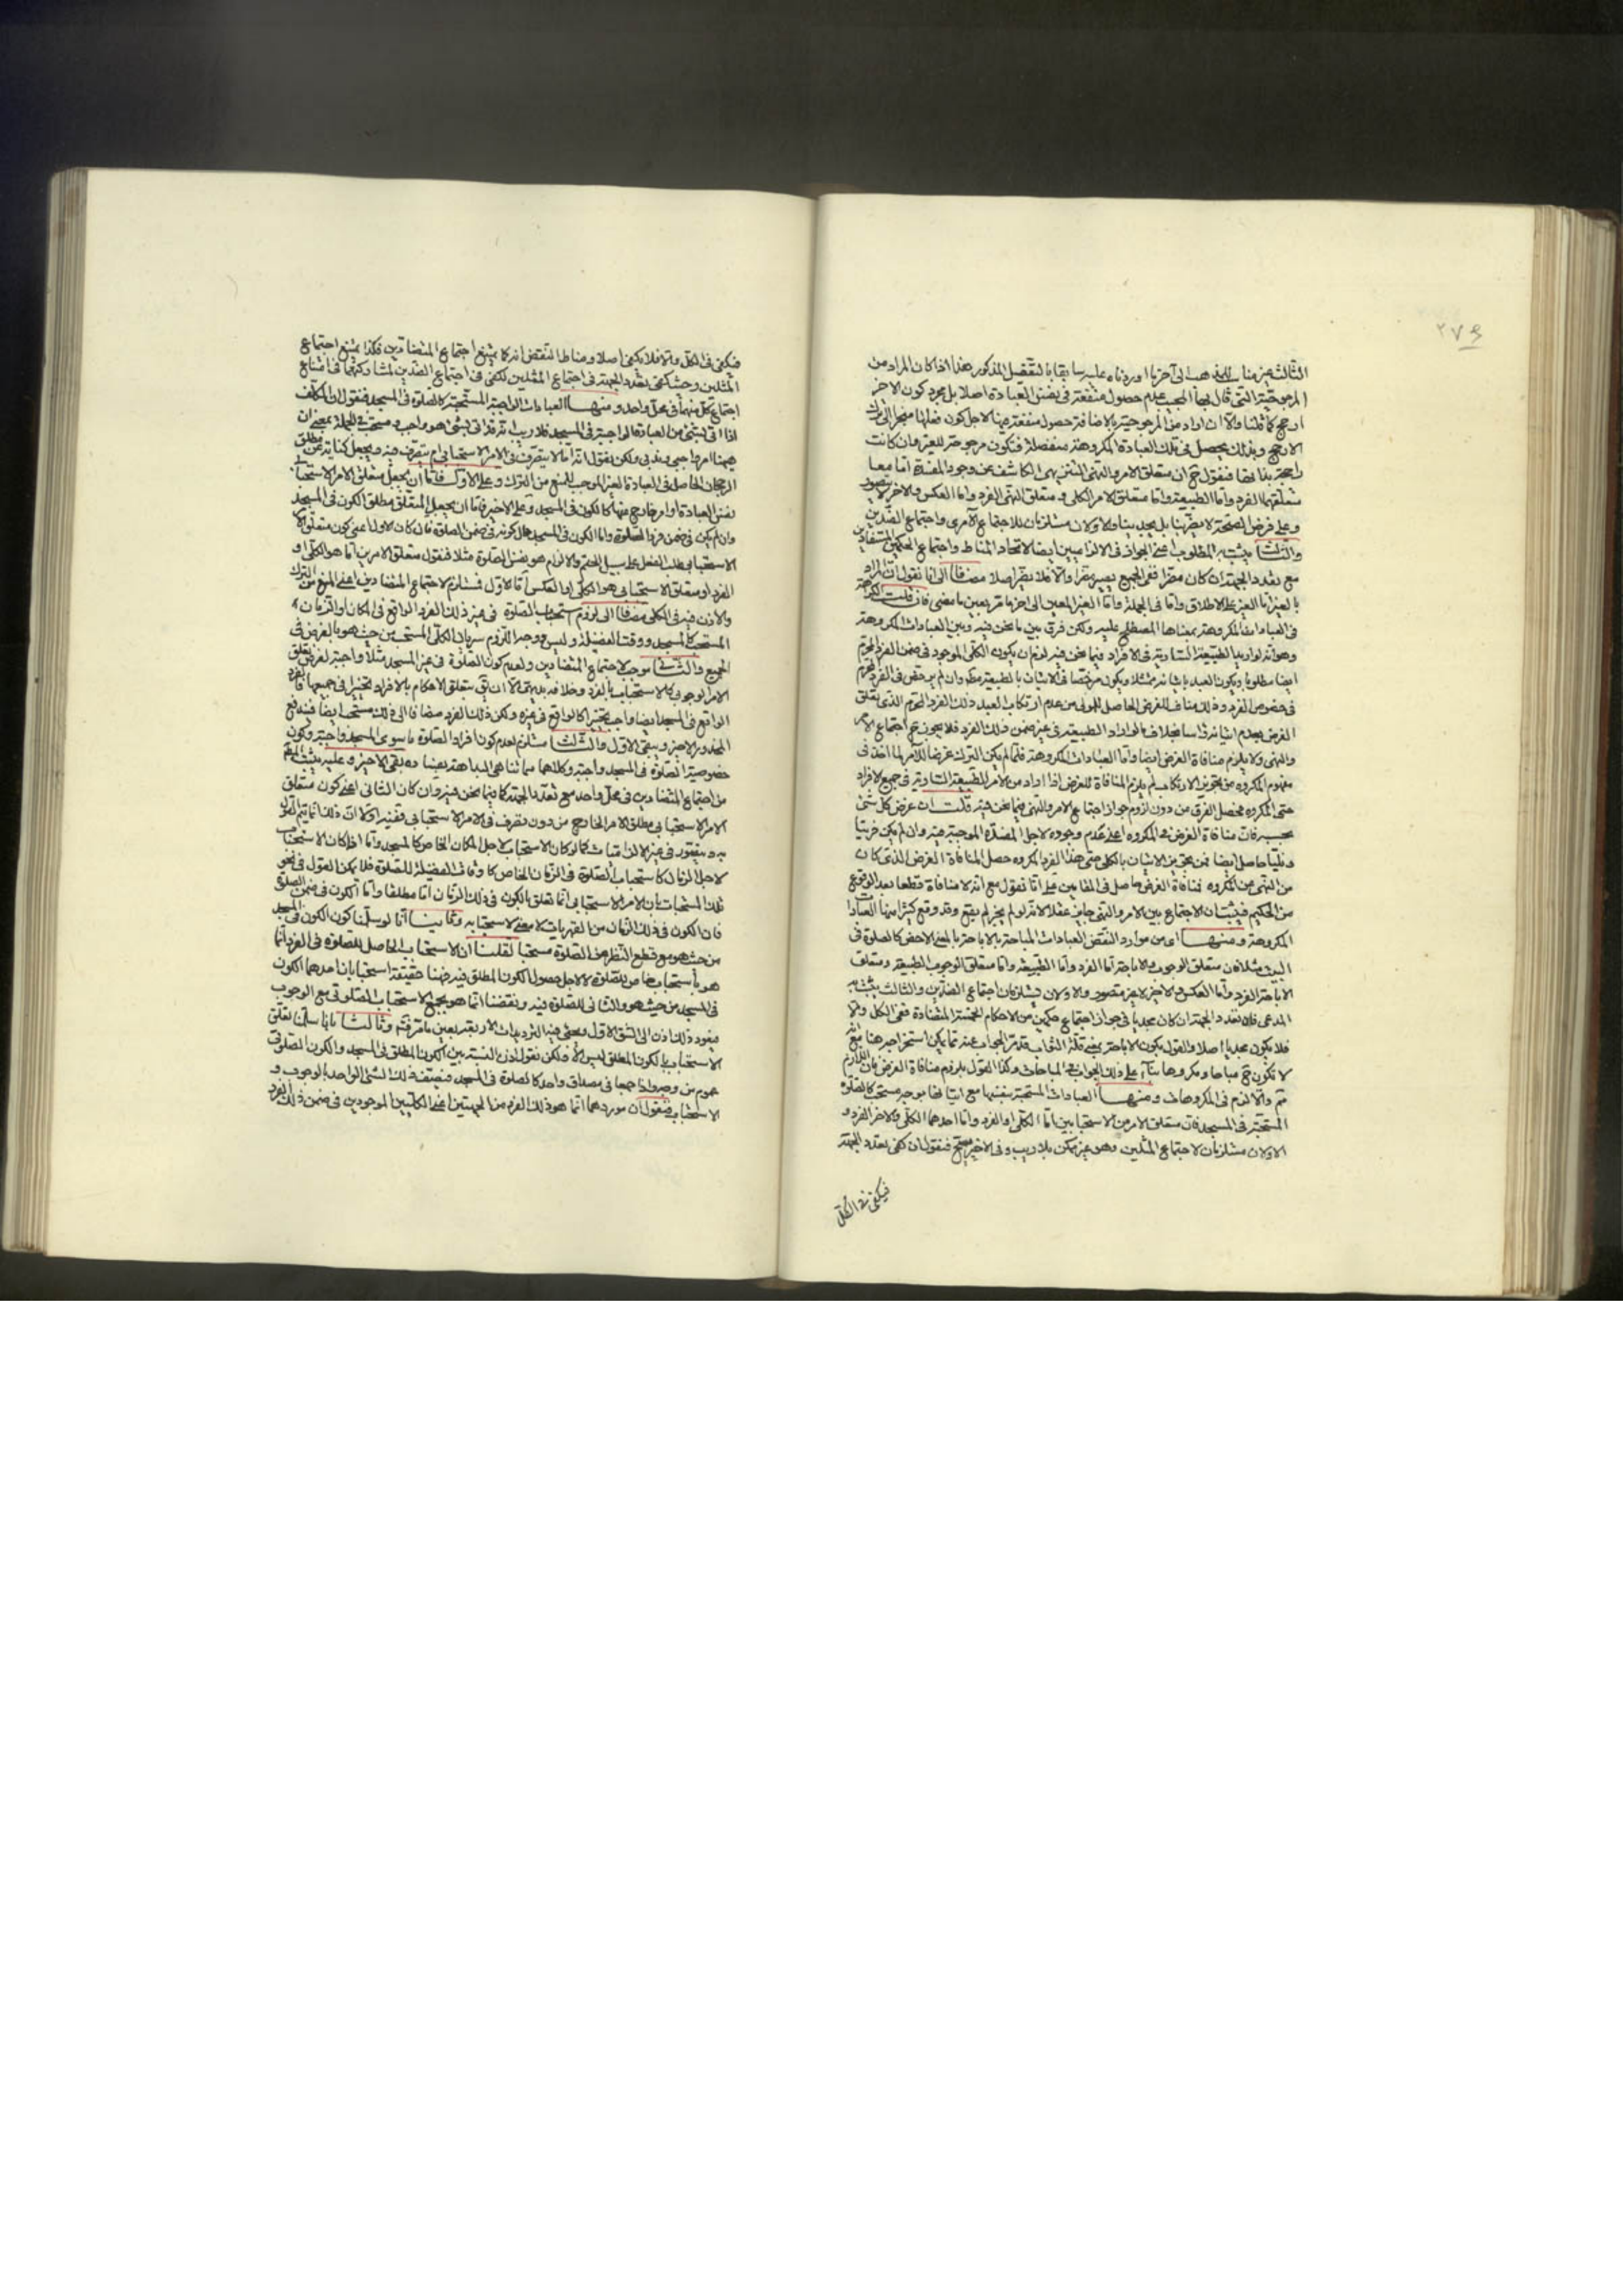 ٢٧٤
الثالث غير مناسب للمذهب الى آخر ما اوردناه عليه سابقا بالتفصيل المذكور هذا اذا كان المراد من
المرجوحية التي قال بها المجيب عدم حصول منفعة في نفس العبادة اصلا بل مجرد كون الآخر
ارجح كما قلنا والا ان اراد من المرجوحية بالاضافة حصول منفعة فيها لاجل كون فعلها منجرا الى ترك
الارجح وبذلك يحصل في تلك العبادة المكروهة منفصلة فتكون مرجوحة للغير وان كانت
راجحة بذاتها فنقول ح ان متعلق الامر والنهي التنزيهي الكاشف عن وجود المفسدة اما معا
متعلقهما الفرد واما الطبيعة واما متعلق الامر الكلي ومتعلق النهي الفرد واما العكس والاخير لا يتصور
وعلى فرض الصحة لا يضر بنا بل يجدينا والاولان مستلزمان للاجتماع الآمري واجتماع الضدين
والثالث يثبت به المطلوب اعني الجواز في الالزاميين ايضا لاتحاد المناط واجتماع الحكمين المتضادين
مع تعدد الجهة ان كان مضرا ففي الجميع يصير مضرا والا فلا يضر اصلا مضافا الى انا نقول ان المراد
بالغير اما الغير على الاطلاق واما في الجملة واما الغير المعين الى آخر ما مر بعين ما مضى فان قلت الكراهة
في العبادات المكروهة بمعناها المصطلح عليه ولكن فرق بين ما نحن فيه وبين العبادات المكروهة
وهو انه لو اريد الطبيعة السارية في الافراد فيما نحن فيه لزم ان يكون الكلي الموجود في ضمن الفرد المحرم
ايضا مطلوبا ويكون العبد باتيانه ممتثلا ويكون مرخصا في الاتيان بالطبيعة وان لم يرخص في الفرد المحرم
في خصوص الفرد وذلك مناف للغرض الحاصل للمولى من عدم ارتكاب العبد ذلك الفرد المحرم الذي يتعلق
الغرض بعدم اتيانه راسا بخلاف ما لو اراد الطبيعة في غير ضمن ذلك الفرد فلا يجوز ح اجتماع الامر
والنهي ولا يلزم منافاة الغرض ايضا واما العبادات المكروهة فلما لم يكن الترك غرضا للآمر لما اخذ في
مفهوم المكروه من تجويز الارتكاب لم يلزم المنافاة للغرض اذا اراد من الامر الطبيعة السارية في جميع الافراد
حتى المكروه فحصل الفرق من دون لزوم جواز اجتماع الامر والنهي فيما نحن فيه قلت ان غرض كل شئ
بحسبه فان منافاة الغرض في المكروه اعني عدم وجوده لاجل المفسدة الموجبة فيه وان لم يكن
حاصل ايضا فمن تجويز الاتيان بالكلي حتى هذا الفرد المكروه حصل المنافاة الغرض الذي كان
من النهي عن المكروه فمنافاة الغرض حاصل في المقامين على انا نقول مع انه لا منافاة قطعا بعد الوقوع
من الحكيم فيثبت ان الاجتماع بين الامر والنهي جايز عقلا لانه لو لم يجز لم يقع وقد وقع كثيرا منها العبادات
المكروهة ومنها اي من موارد النقض العبادات المباحة بالاباحة بالمعنى الاخص كالصلوة في
البيت مثلا فان متعلق الوجوب والاباحة اما الفرد واما الطبيعة واما متعلق الوجوب الطبيعة ومتعلق
الاباحة الفرد واما العكس والاخير غير متصور والاولان يستلزمان اجتماع الضدين والثالث يثبت به
المدعى فان تعدد الجهة ان كان مجديا في جواز اجتماع حكمين من الاحكام الخمسة المتضادة ففي الكل والا
فلا يكون مجديا اصلا والقول بكون الاباحة بمعنى قلة الثواب قد مر الجواب عنه مما يمكن استخراجه هنا مع انه
لا تكون ح مباحا ومكروها بناء على ذلك الجواب في المباحات وكذا القول بلزوم منافاة الغرض فان اللازم
ثم والا لزم في المكروهات ومنها العبادات المستحبة بنفسها مع اتيانها بوجه مستحب كالصلوة
المستحبة في المسجد فان متعلق الامرين الاستحبابين اما الكلي او الفرد واما احدهما الكلي والاخر الفرد و
الاولان مستلزمان لاجتماع المثلين وهو غير ممكن بلا ريب وفي الاخير يصح فنقول ان كفى تعدد الجهة
فيكفي في الكل
فيكفي في الكل والا فلا يكفي اصلا ومناط النقض انه كما يمتنع اجتماع المتضادين فكذا يمتنع اجتماع
المثلين وحيث كفى تعدد الجهة في اجتماع المثلين لكفى في اجتماع الضدين لمشاركتهما في امتناع
اجتماع كل منهما في محل واحد ومنها العبادات الواجبة المستحبة كالصلوة في المسجد فنقول ان المكلف
اذا اتى بشئ من العبادة الواجبة في المسجد فلا ريب انه قد اتى بشئ هو واجب ومستحب في الجملة بمعنى ان
هيهنا امر واجبي وندبي ولكن نقول انه اما لا يتصرف في الامر الاستحبابي ام يتصرف فيه ويجعل كناية عن مطلق
الرجحان الحاصل في العبادة الغير الموجب للمنع من الترك وعلى الاول فاما ان يجعل متعلق الامر الاستحبابي
نفس العبادة او امر خارج عنها كالكون في المسجد وعلى الاخير فاما ان يجعل المتعلق مطلق الكون في المسجد
وان لم يكن في ضمن فرد الصلوة واما الكون في المسجد حال كونه في ضمن الصلوة فان كان الاول اعني كون متعلق الامر
الاستحبابي طلب الفعل على سبيل الحتم والالزام هو نفس الصلوة مثلا فنقول متعلق الامرين اما هو الكلي او
الفرد او متعلق الاستحبابي هو الكلي او العكس اما الاول فمستلزم لاجتماع المتضادين اعني المنع من الترك
والاذن فيه في الكلي مضافا الى لزوم استحباب الصلوة في غير ذلك الفرد الواقع في المكان او الزمان
المستحب كالمسجد ووقت الفضيلة وليس وجه اللزوم سريان الكلي المستحب من حيث هو بالفرض في
الجميع والثاني موجب لاجتماع المتضادين ولعدم كون الصلوة في غير المسجد مثلا واجبة لفرض تعلق
الامر الوجوبي كالاستحباب بالفرد وخلافه بديهي الا ان يق بتعلق الاحكام بالافراد تخييرا في جميعها فالفرد
الواقع في المسجد ايضا واجب تخييرا كالواقع في غيره ولكن ذلك الفرد مضافا الى ذلك مستحب ايضا فيندفع
المحذور الاخير ويبقى الاول والثالث مستلزم لعدم كون افراد الصلوة ما سوى المسجد واجبة وكون
خصوصية الصلوة في المسجد واجبة وكلاهما مما ثنا في البداهة يبقى الاخير وعليه يثبت المدعى
من اجتماع المتضادين في محل واحد مع تعدد الجهة كما فيما نحن فيه وان كان الثاني اعني كون متعلق
الامر الاستحبابي مطلق الامر الخارج من دون تصرف في الامر الاستحبابي ففيه اولا ان ذلك انما يتم القول
به ويتصور في غير الالزاميات كما لو كان الاستحباب لاجل المكان الخاص كالمسجد واما اذا كان الاستحباب
لاجل الزمان كاستحباب الصلوة في الزمان الخاص كاوقات الفضيلة للصلوة فلا يمكن القول في نحو
تلك المستحبات بان الامر الاستحبابي انما تعلق بالكون في ذلك الزمان اما مطلقا واما الكون في ضمن الصلوة
فان الكون في ذلك الزمان من القهريات لا معنى لاستحبابه وثانيا انا لو سلمنا كون الكون في المسجد
من حيث هو مع قطع النظر عن الصلوة مستحبا لقلنا ان الاستحباب الحاصل للصلوة في الفرد انما
هو باستحباب خاص للصلوة لا لاجل حصول الكون المطلق فيه فهنا حقيقة استحبابان احدهما الكون
في المسجد من حيث هو والثاني للصلوة فيه ونقضنا انما هو بجمع الاستحباب الصلوتي مع الوجوب
فيعود ذلك اذن الى الشق الاول ويجئ فيه الترديدات الاربعة بعين ما مر فيه وثالثا بانا سلمنا تعلق
الاستحباب بالكون المطلق ليس الا ولكن نقول اذن النسبة بين الكون المطلق في المسجد والكون الصلوتي
عموم من وجه واذا جمعا في مصداق واحد كالصلوة في المسجد فيتصف ذلك الشئ الواحد بالوجوب و
الاستحباب فنقول ان موردهما انما هو ذلك الفرد من الجهتين اعني الكليتين الموجودين في ضمن ذلك الفرد